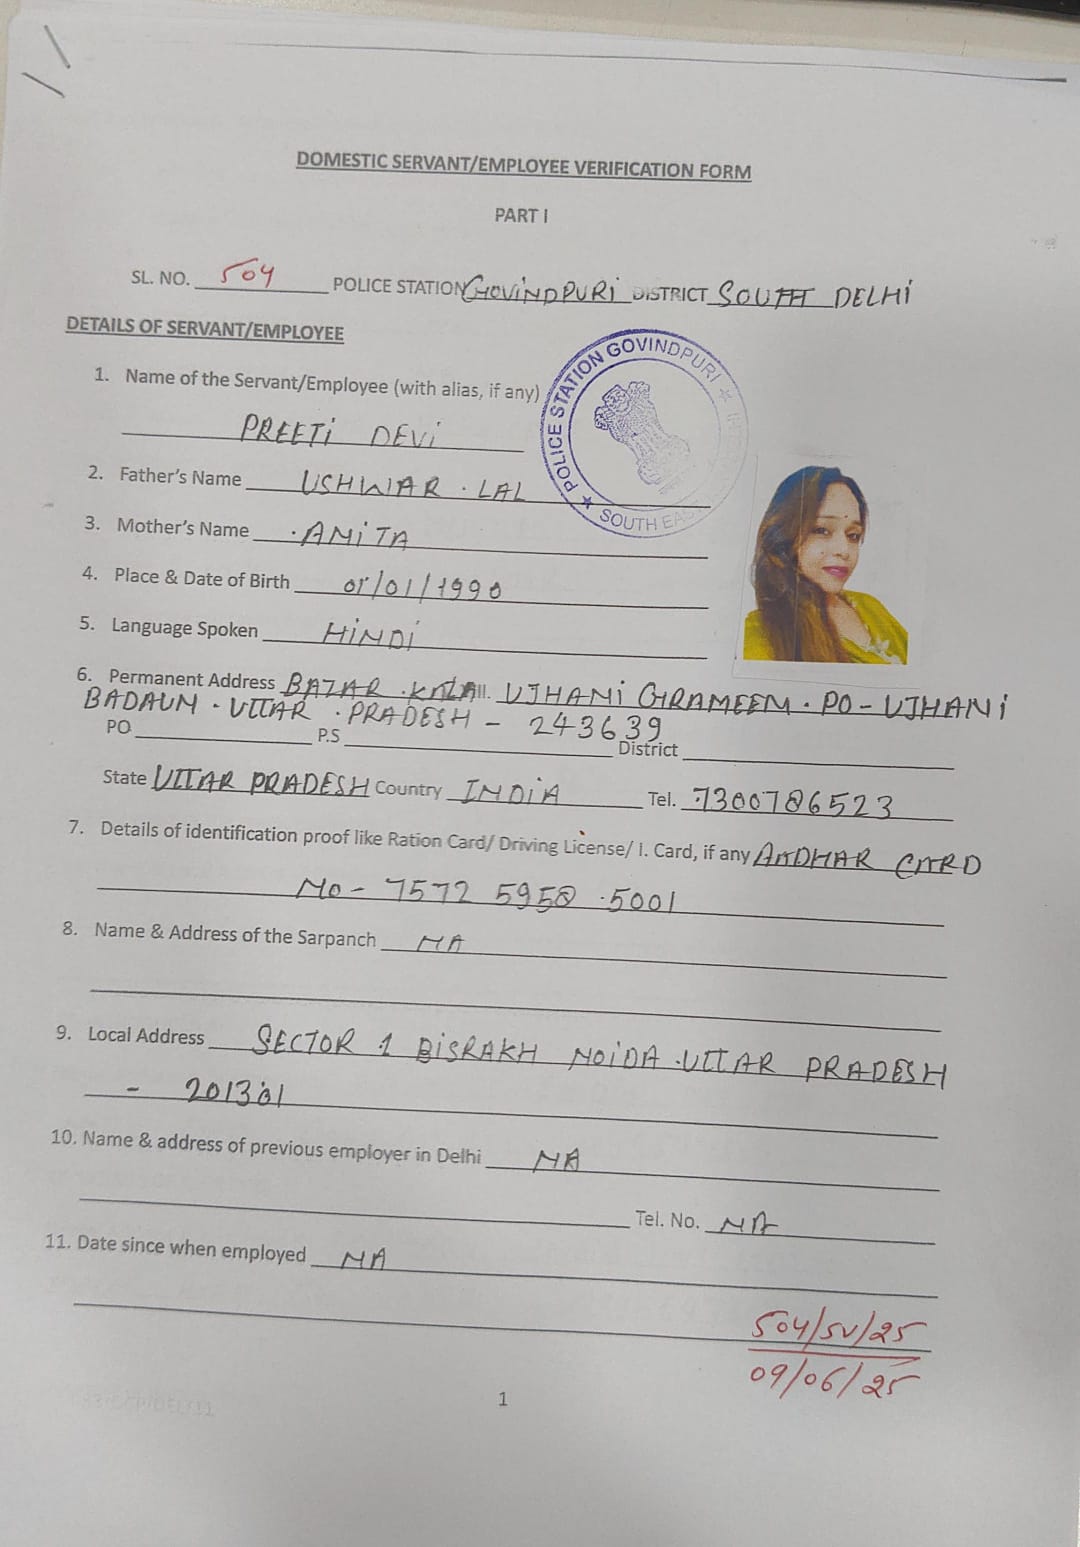 DOMESTIC SERVANT/EMPLOYEE VERIFICATION FORM
PART I
SL. NO. 504 POLICE STATION GOVINDPURI DISTRICT SOUTH DELHI
DETAILS OF SERVANT/EMPLOYEE
1. Name of the Servant/Employee (with alias, if any)
PREETI DEVI
POLICE STATION GOVINDPURI
SOUTH EAS
2. Father's Name USHWAR . LAL
3. Mother's Name . AMITA
4. Place & Date of Birth 01/01/1990
5. Language Spoken HINDI
6. Permanent Address BAZAR . UJHANI GRAMEEN . PO - UJHANI
BADAUN . UTTAR . PRADESH - 243639
PO P.S District
State UTTAR PRADESH Country INDIA Tel. 7300786523
7. Details of identification proof like Ration Card/ Driving License/ I. Card, if any AADHAR CARD
NO - 7572 5958 .5001
8. Name & Address of the Sarpanch NA
9. Local Address SECTOR 1 BISRAKH NOIDA . UTTAR PRADESH
- 201301
10. Name & address of previous employer in Delhi NA
Tel. No. NA
11. Date since when employed NA
504/SV/25
09/06/25
1